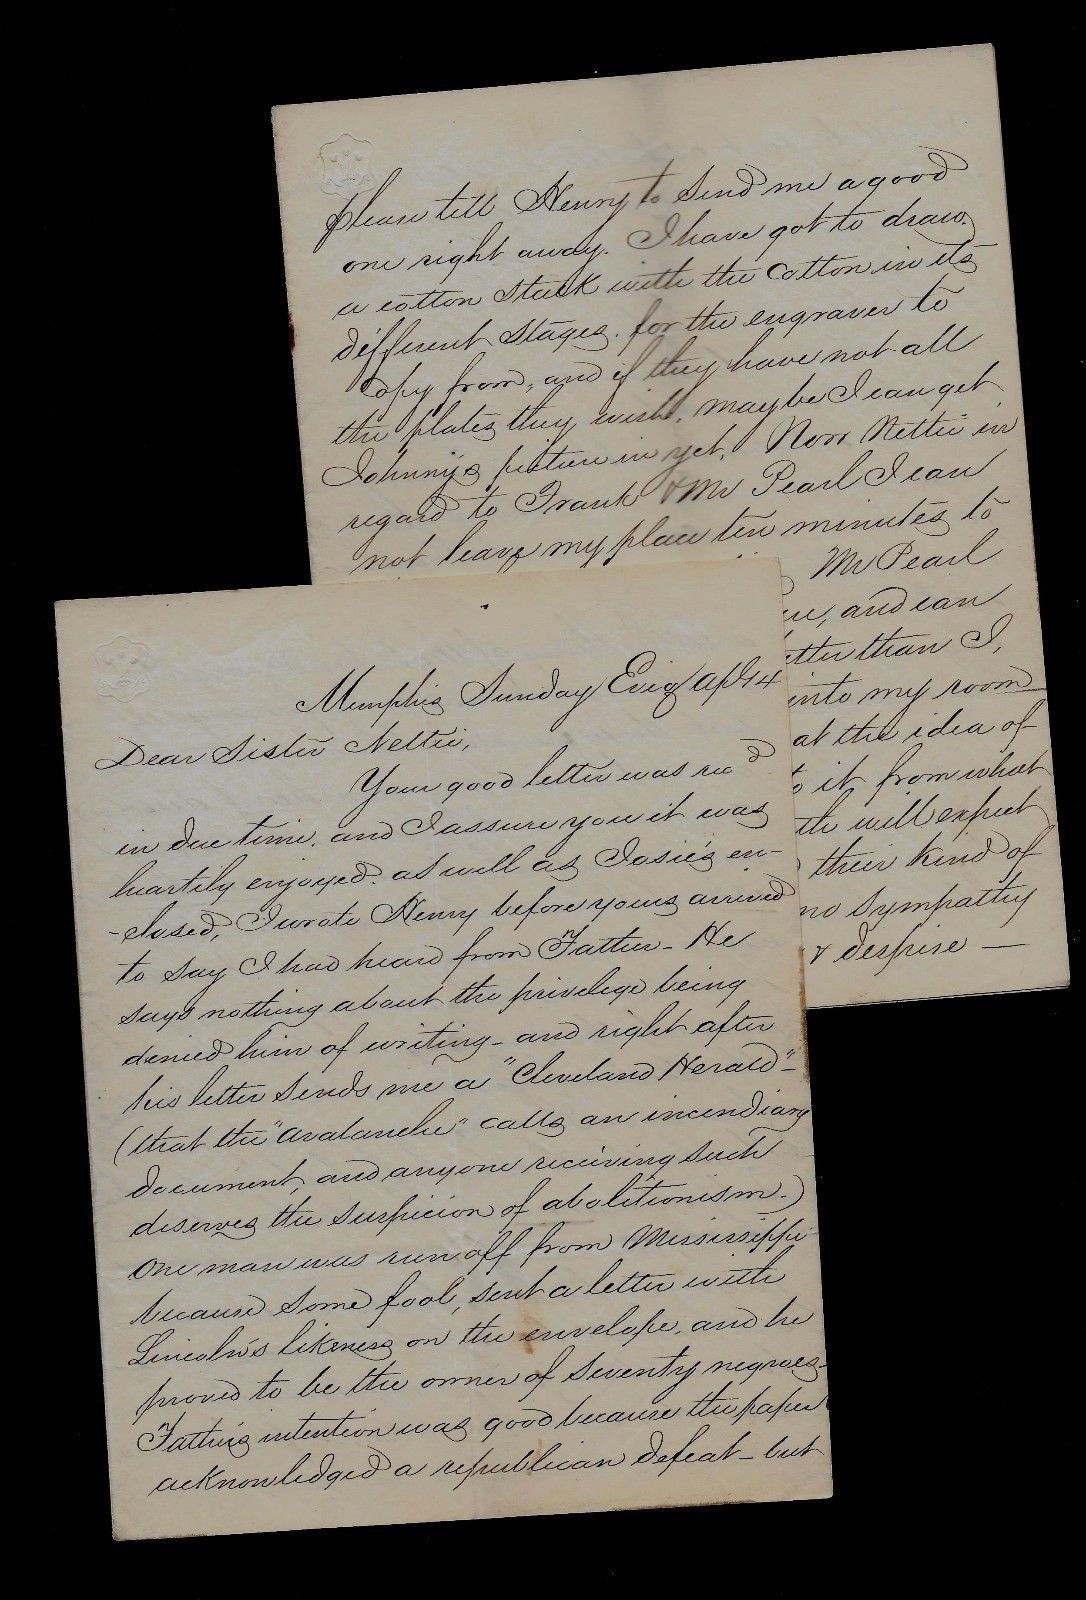 Memphis Sunday Evig Apl 14
Dear Sister Nettie,
Your good letter was recd
in due time, and I assure you it was
heartily enjoyed. as well as Josie's en-
-closed, I wrote Henry before yours arrived
to say I had heard from Father - He
says nothing about the privelege being
denied him of writing - and right after
his letter sends me a "Cleveland Herald" -
(that the "Avalanche" calls an incendiary
document, and anyone receiving such
deserves the suspicion of abolitionism.)
One man was run off from Mississippi
because some fool, sent a letter with
Lincoln's likeness on the envelope, and he
proved to be the owner of seventy negroes -
Father's intention was good because the paper
acknowledged a republican defeat - but
please tell Henry to send me a good
one right away. I have got to draw
a cotton stalk with the cotton in its
different stages. for the engraver to
copy from, and if they have not all
the plates they wish, maybe I can get
Johnny's picture in yet. Now Nettie in
regard to Frank & Mr Pearl I can
not leave my place ten minutes to
Mr Pearl
and can
than I,
into my room
at the idea of
it from what
will expect
their kind of
no sympathy
& despise -